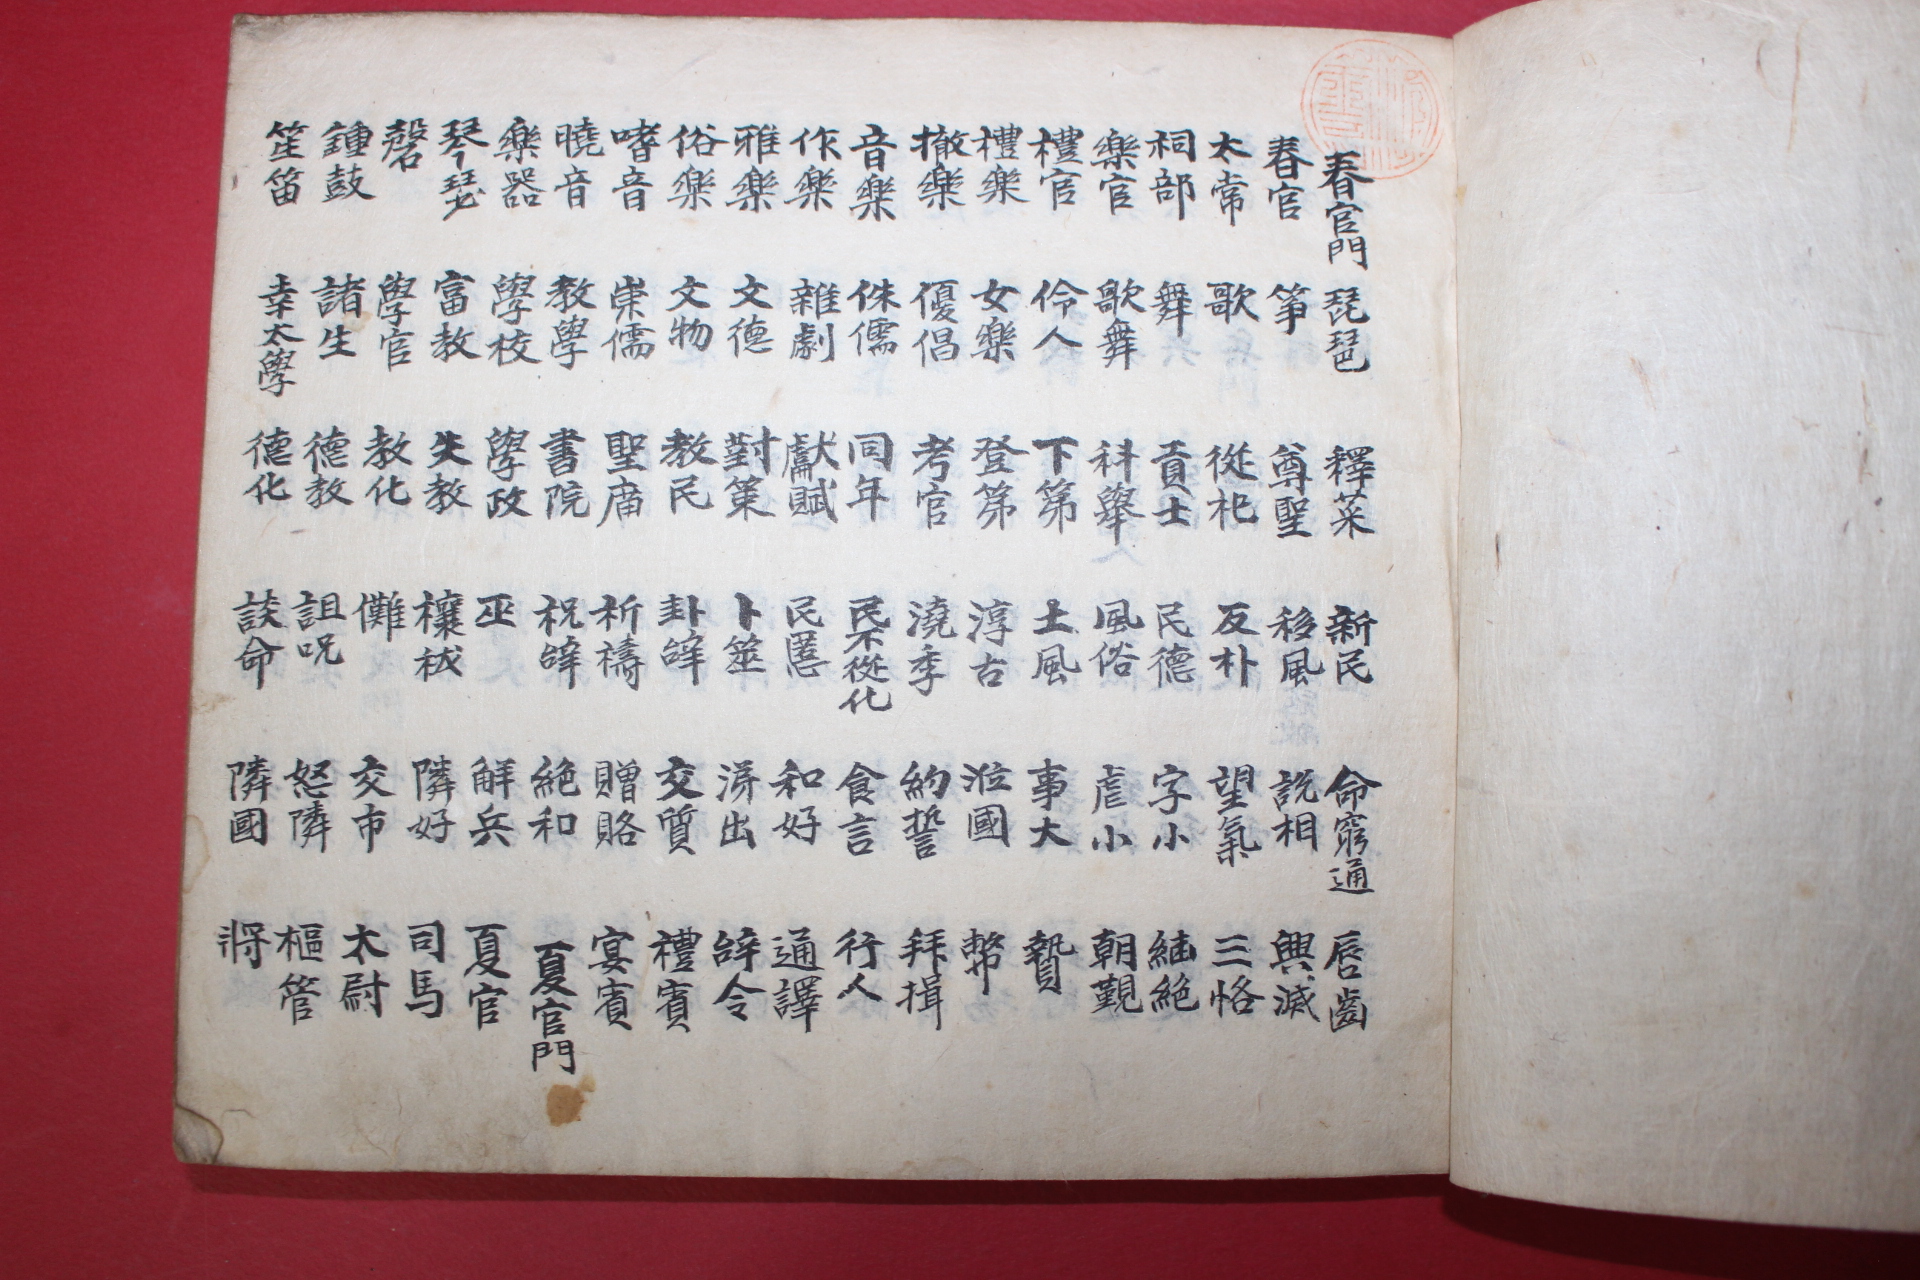 春官門 春官 太常 祠部 樂官 禮官 禮樂 撤樂 音樂 作樂 雅樂 俗樂 嗜音 曉音 樂器 琴瑟 磬 鍾鼓 笙笛
琵琶 箏 歌 舞 歌舞 伶人 女樂 優倡 侏儒 雜劇 文德 文物 崇儒 教學 學校 富教 學官 諸生 幸太學
釋菜 尊聖 從祀 貢士 科舉 下第 登第 考官 同年 獻賦 對策 教民 聖庙 書院 學政 失教 教化 德教 德化
新民 移風 反朴 民德 風俗 土風 淳古 澆季 民不從化 民慝 卜筮 卦辭 祈禱 祝辭 巫 禳祓 儺 詛呪 談命
命窮通 說相 望氣 字小 虐小 事大 涖國 約誓 食言 和好 出 交質 贈賂 絶和 觧兵 隣好 交市 怒隣 隣國
唇齒 興滅 三恪 継絶 朝覲 贄 幣 拜揖 行人 通譯 辭令 禮賓 宴賓 夏官門 夏官 司馬 太尉 樞管 將